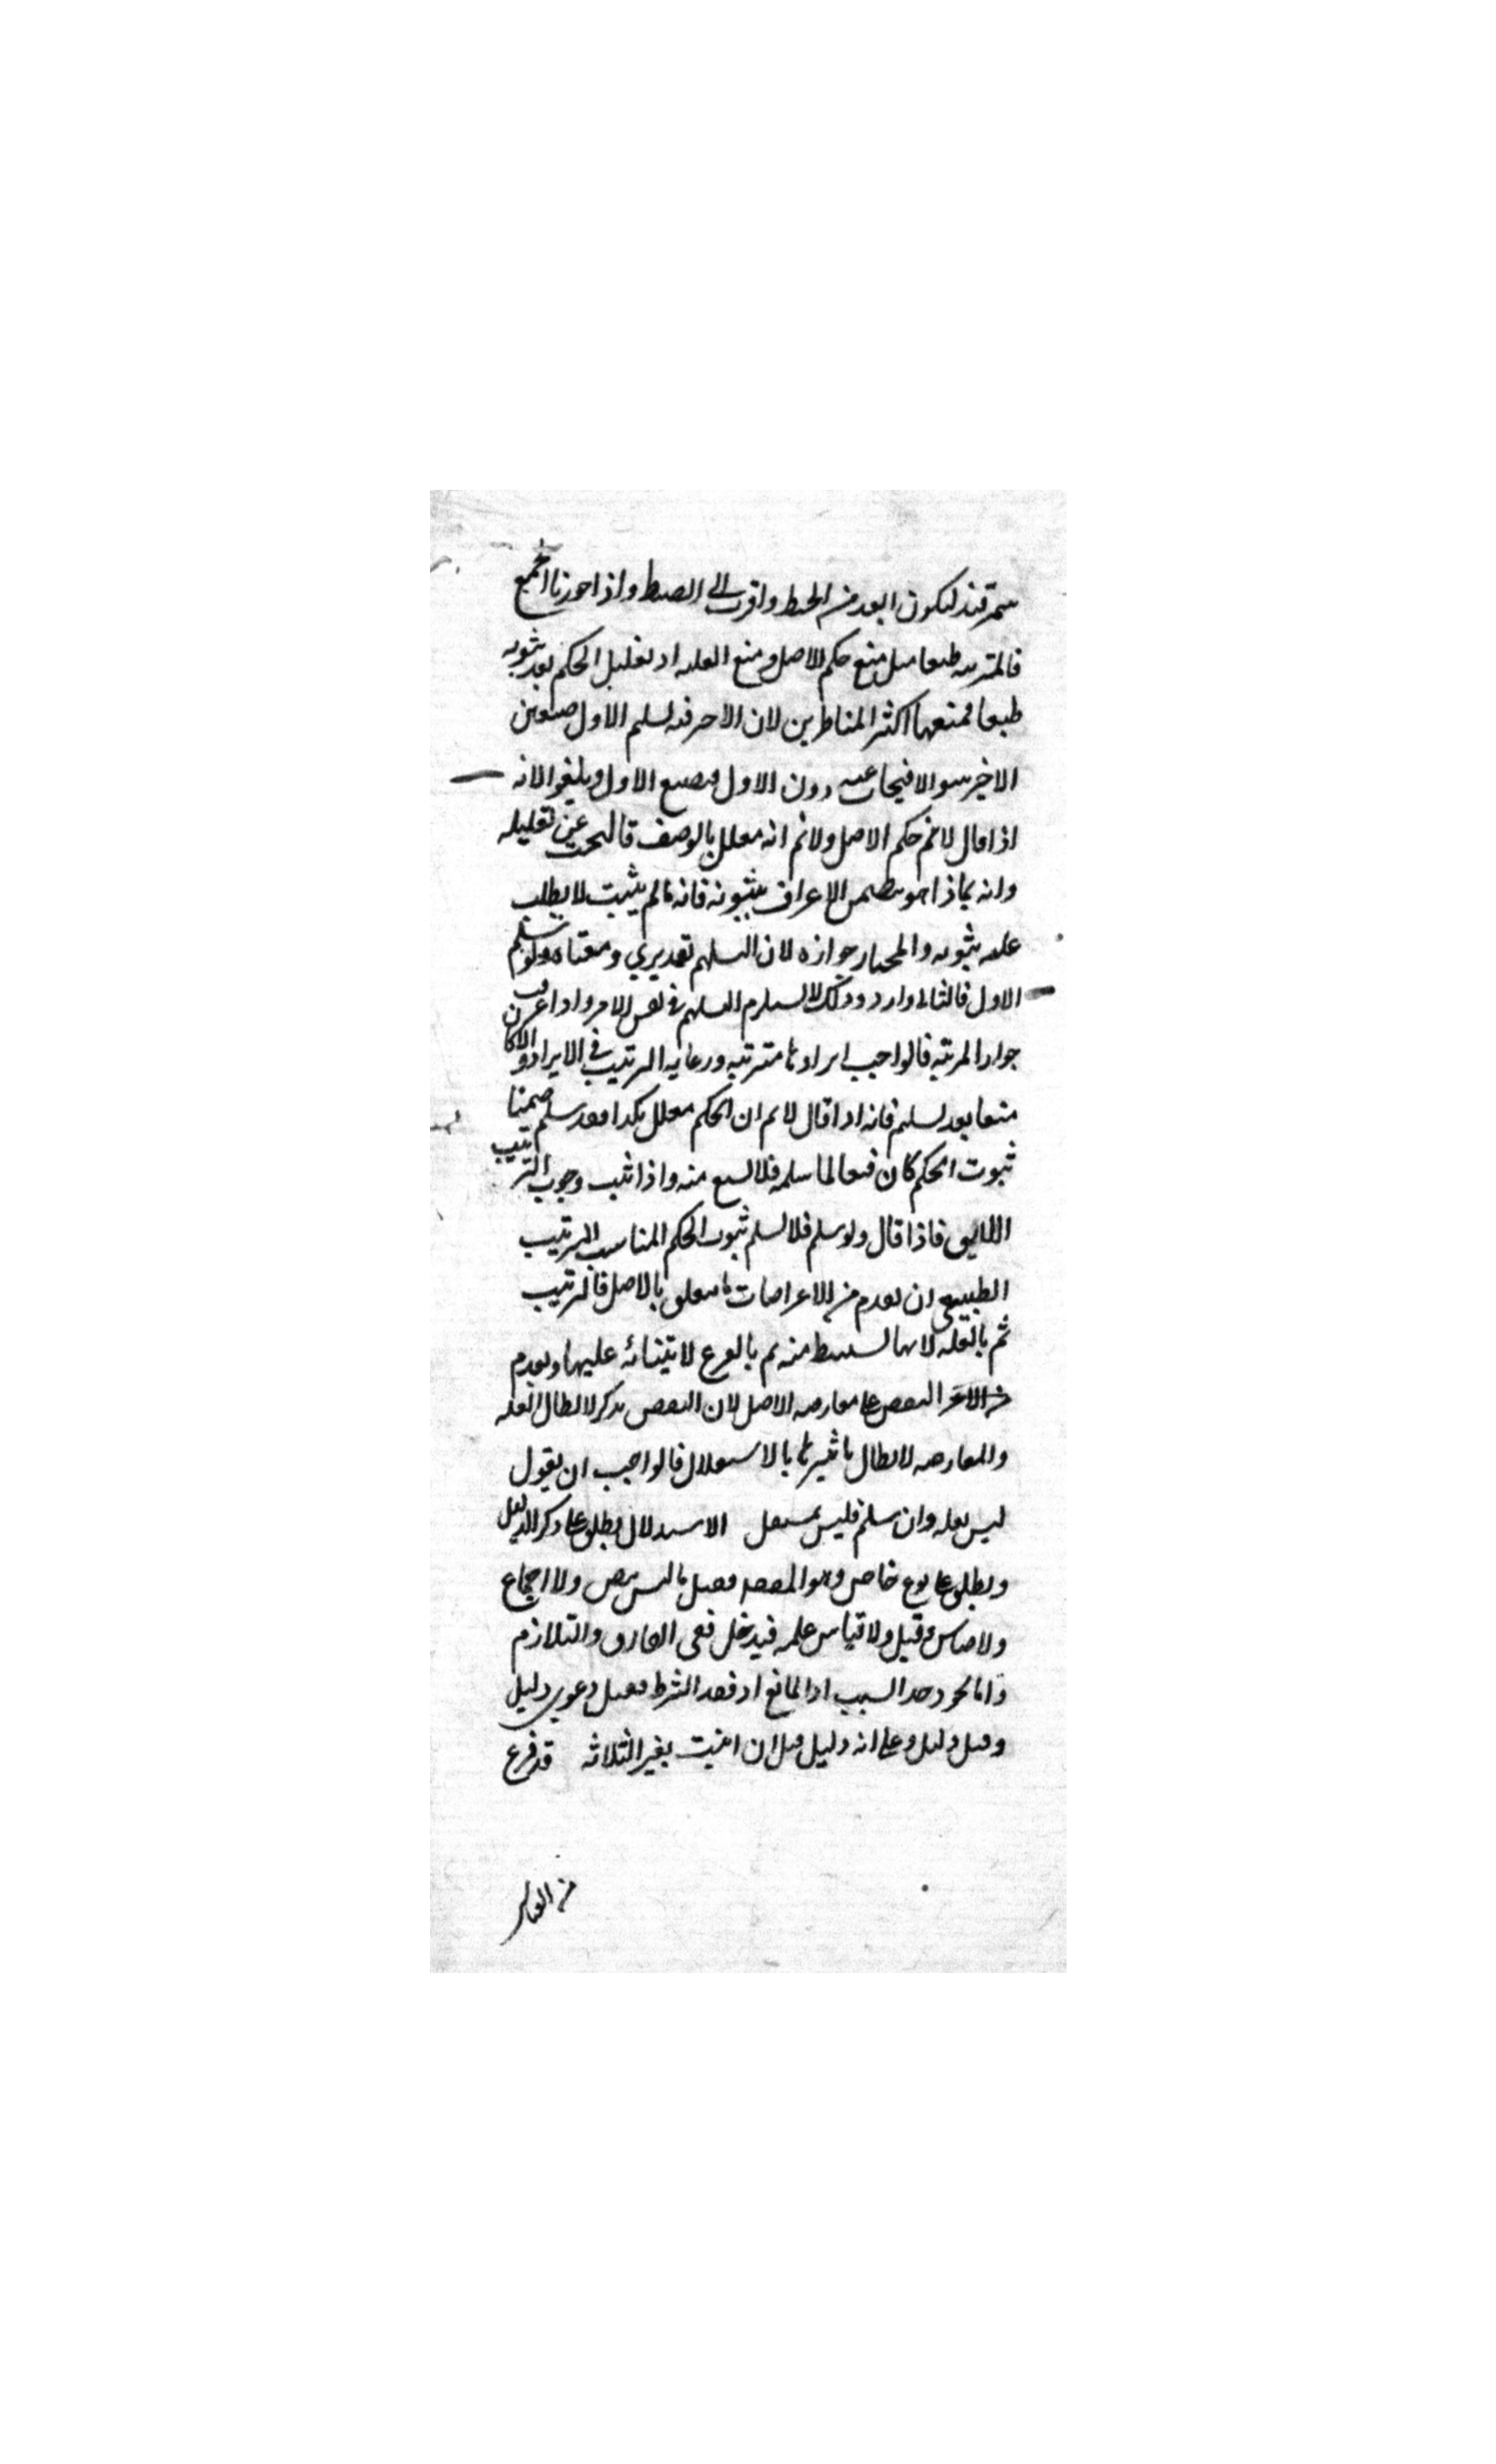 سمرقند ليكون ابعد من الخبط واقرب الى الضبط واذا جوزنا الجمع
فالمترتبة طبعا مثل منع حكم الاصل ومنع العلية اذ تعليل الحكم بعد ثبوته
طبعا فمنعها اكثر المناظرين لان الاخر فيه تسليم الاول فيتعين
الاخير سوالا فيجاب عنه دون الاول فيضيع الاول ويلغو لانه
اذا قال لا نم حكم الاصل ولا نم انه معلل بالوصف فالبحث عن تعليله
وانه بماذا هو يتضمن الاعتراف بثبوته فانه ما لم يثبت لا يطلب
علة ثبوته والمختار جوازه لان التسليم تقديري ومعناه ولو سلم
الاول فالثاني وارد وذلك لا يستلزم التسليم في نفس الامر واذا عرفت
جواز المرتبة فالواجب ايرادها مترتبة ورعاية الترتيب في الايراد والا كان
منعا بعد تسليم فانه اذا قال لا نم ان الحكم معلل بكذا فقد سلم ضمنا
ثبوت الحكم كان منعا لما سلمه فلا يسمع منه واذا ثبت وجوب الترتيب
اللايق فاذا قال ولو سلم فلا نسلم ثبوت الحكم المناسب للترتيب
الطبيعي ان يقدم من الاعتراضات ما يتعلق بالاصل فالترتيب
ثم بالعلة لانها تستنبط منه ثم بالفرع لابتنائه عليها ويقدم
النقض على معارضة الاصل لان النقض يذكر لابطال العلة
والمعارضة لابطال تاثيرها بالاستقلال فالواجب ان يقول
ليس بعلة وان سلم فليس بمستقل الاستدلال يطلق على ذكر الدليل
ويطلق على نوع خاص وهو المقصد فقيل ما ليس بنص ولا اجماع
ولا قياس وقيل ولا قياس علة فيدخل نفي الفارق والتلازم
واما نحو وجد السبب او المانع او فقد الشرط فقيل دعوى دليل
وقيل دليل وعلى انه دليل قيل ان اثبت بغير الثلاثة قد فرغ
من القياس